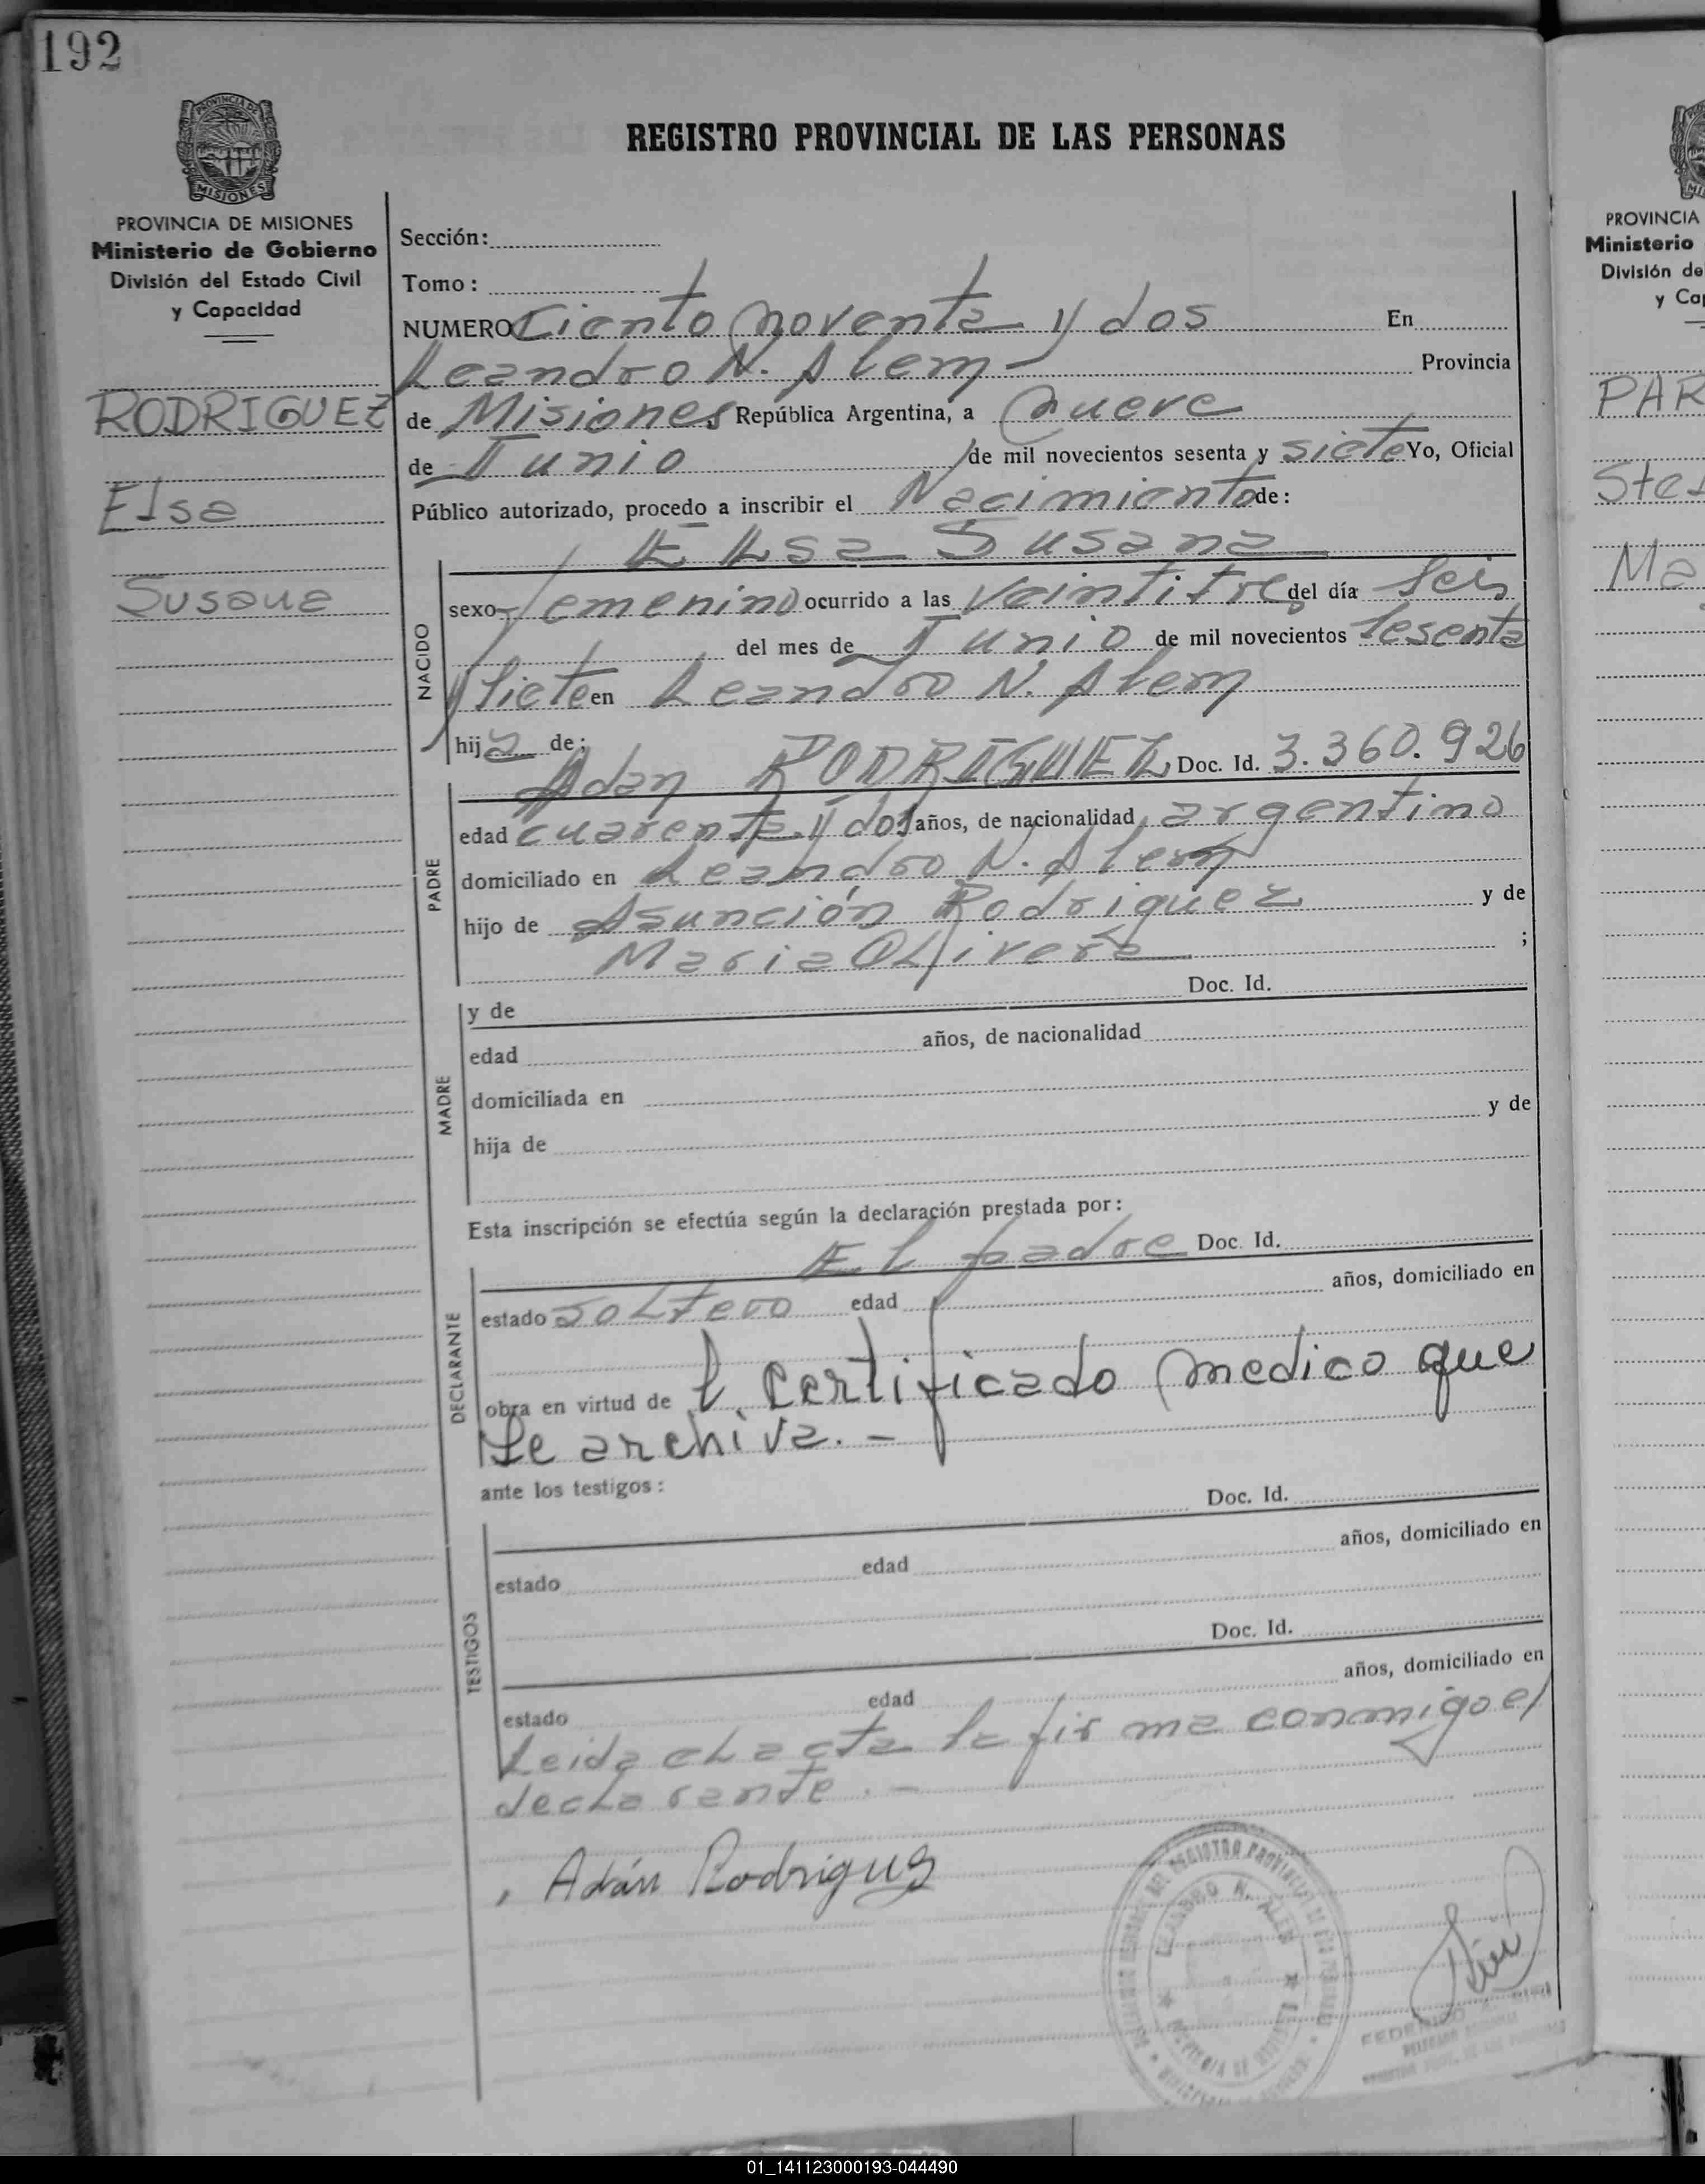 192
PROVINCIA DE MISIONES
MISIONES
PROVINCIA DE MISIONES
Ministerio de Gobierno
División del Estado Civil
y Capacidad
RODRIGUEZ
Elsa
Susana
REGISTRO PROVINCIAL DE LAS PERSONAS
Sección:
Tomo:
NUMERO Ciento noventa y dos En
Leandro N. Alem - Provincia
de Misiones República Argentina, a nueve
de Junio de mil novecientos sesenta y siete Yo, Oficial
Público autorizado, procedo a inscribir el Nacimiento de:
Elsa Susana
NACIDO
sexo femenino ocurrido a las veintitres del día seis
del mes de Junio de mil novecientos sesenta
y siete en Leandro N. Alem
hija de:
Adan RODRIGUEZ Doc. Id. 3.360.926
PADRE
edad cuarenta y dos años, de nacionalidad argentino
domiciliado en Leandro N. Alem
hijo de Asunción Rodriguez y de
Maria Olivera ;
MADRE
y de Doc. Id.
edad años, de nacionalidad
domiciliada en
hija de y de
Esta inscripción se efectúa según la declaración prestada por:
El padre Doc. Id.
DECLARANTE
estado soltero edad años, domiciliado en
obra en virtud de l certificado medico que
se archiva. -
ante los testigos:
Doc. Id.
TESTIGOS
estado edad años, domiciliado en
Doc. Id.
estado edad años, domiciliado en
Leida el acta la firma conmigo el
declarante. -
Adán Rodriguez
REGISTRO PROVINCIAL DE LAS PERSONAS
LEANDRO N. ALEM
FEDERICO
PROVINCIA
Ministerio
División de
y Ca
PAR
Ste
Ma
01_141123000193-044490